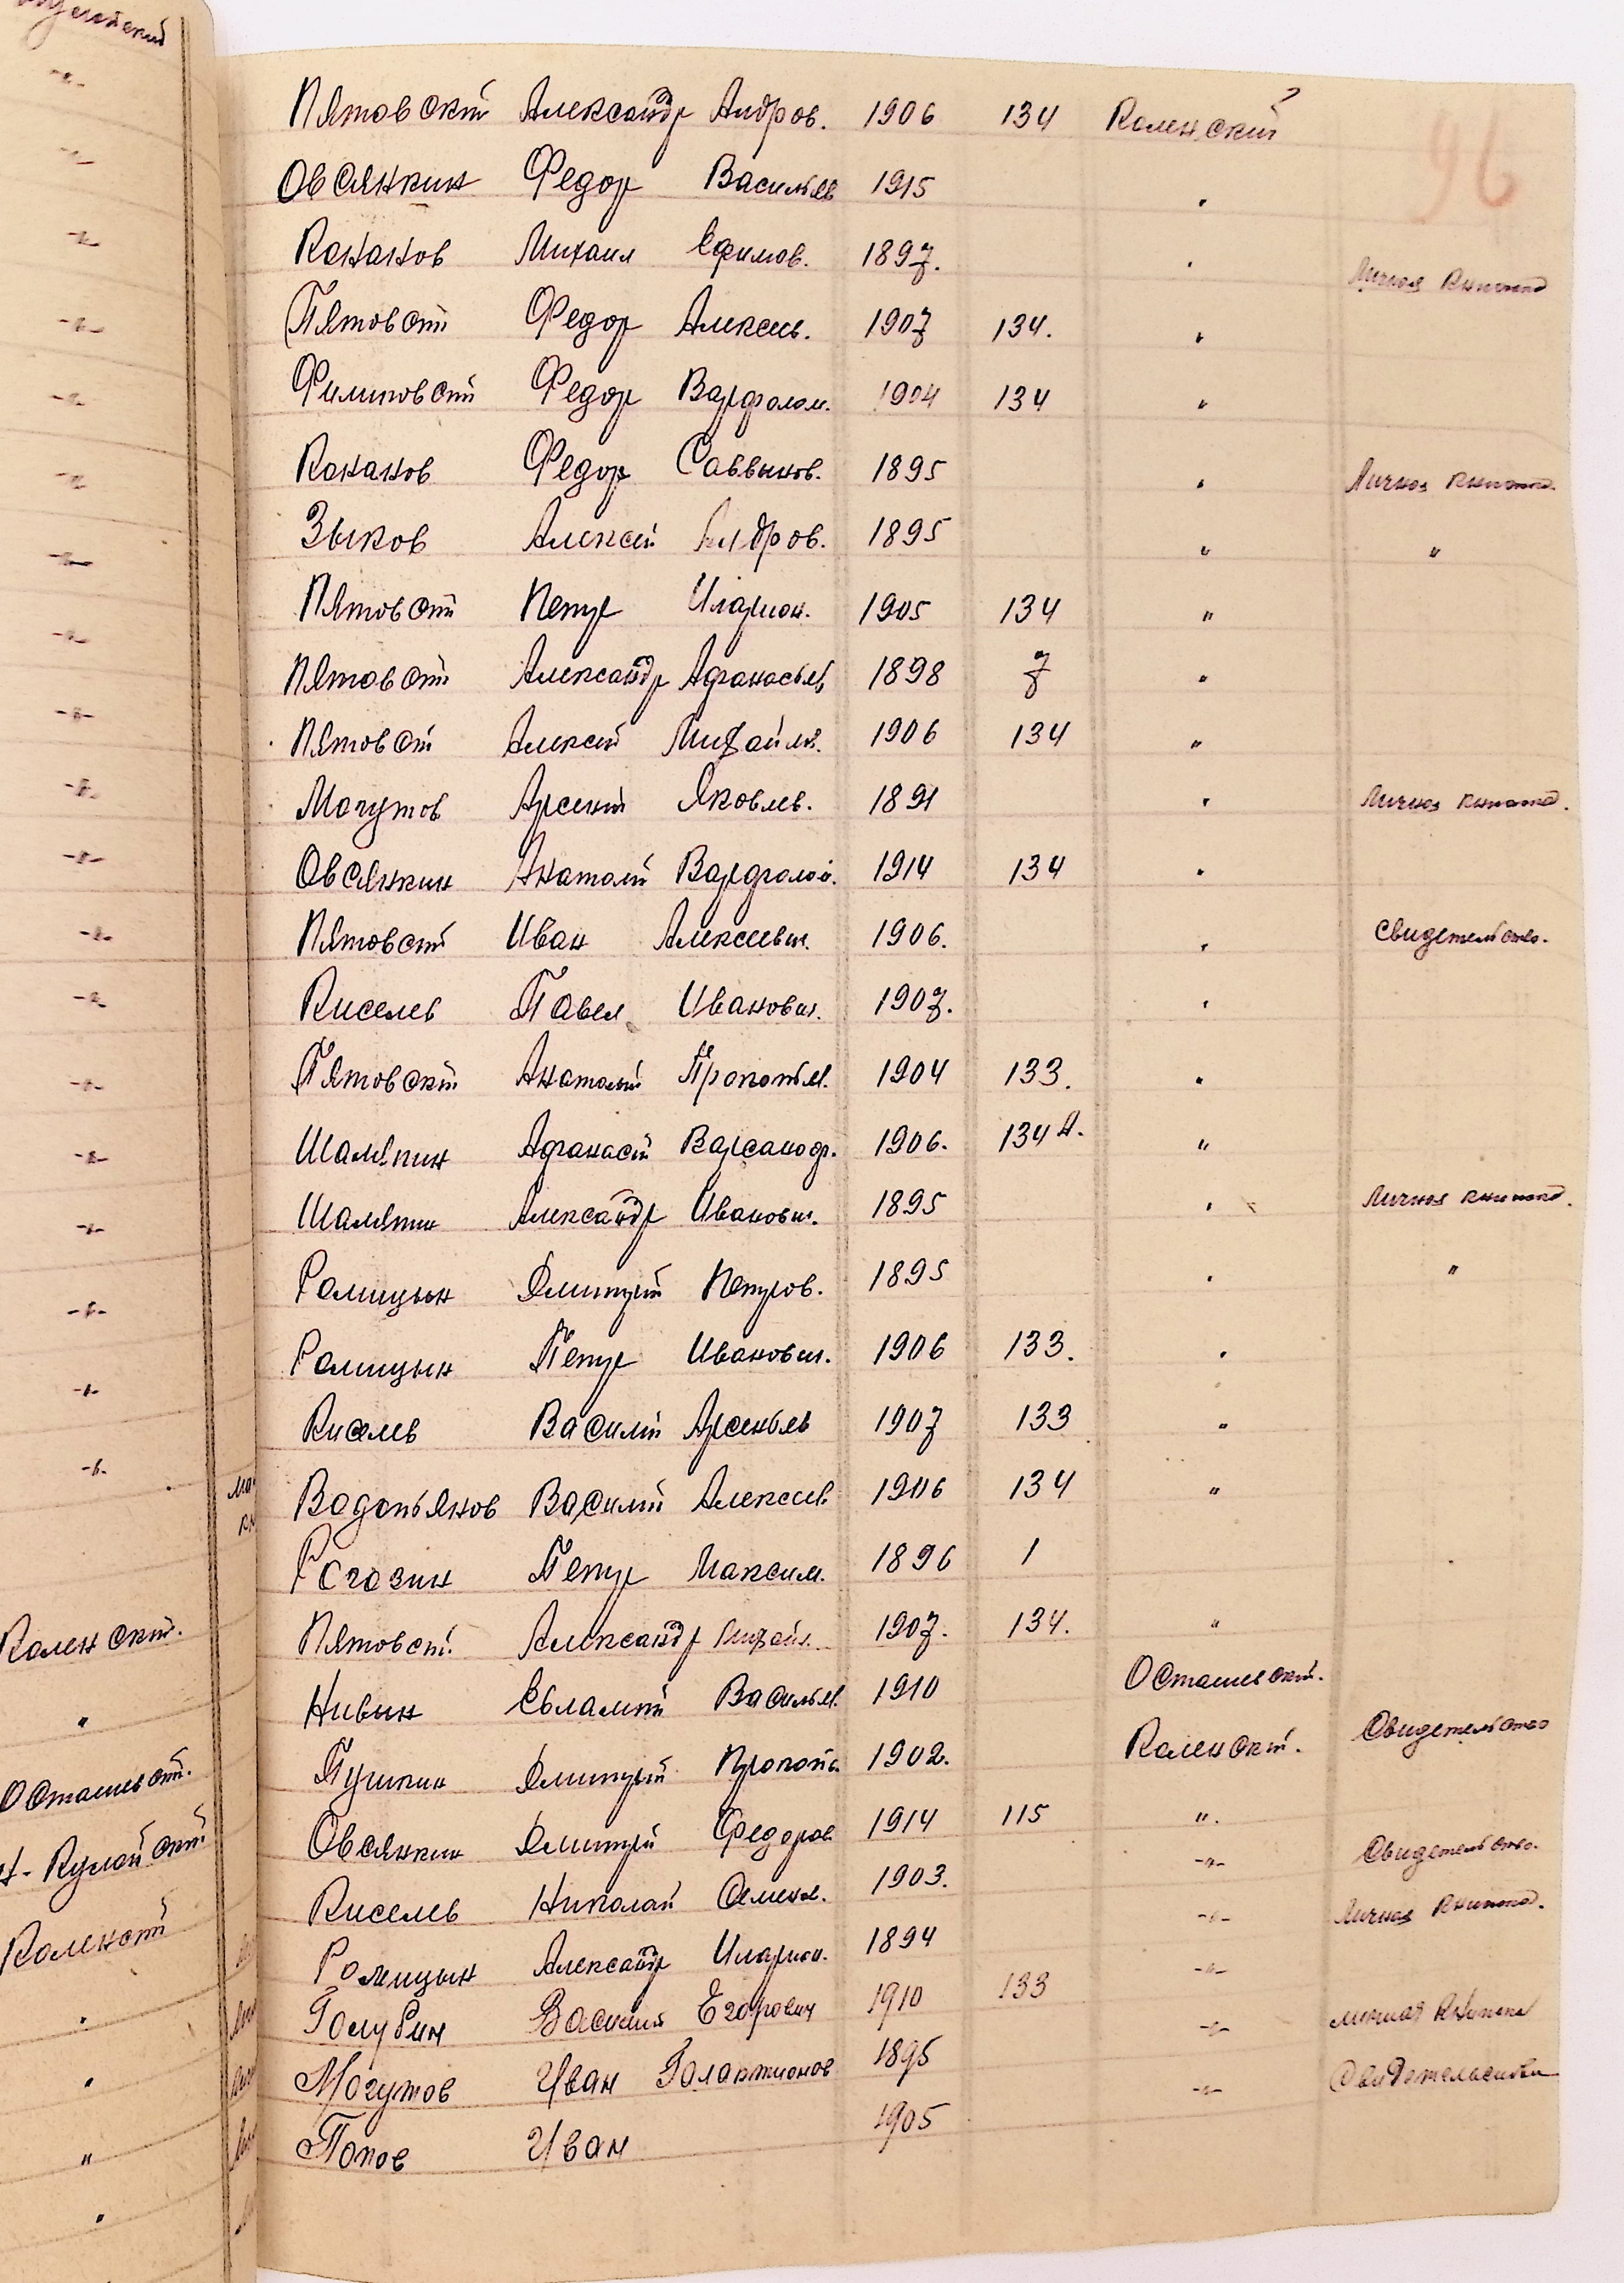 96
Пятовский Александр Андров. 1906 134 Коленский
Овсянкин Федор Васильев 1915 "
Канаков Михаил Ефимов. 1897. " Личная книжка
Пятовский Федор Алексеев. 1907 134. "
Филиповский Федор Варфолом. 1904 134 "
Канаков Федор Саввинов. 1895 " Личная книжка.
Зыков Алексей Андров. 1895 " "
Пятовский Петр Иларион. 1905 134 "
Пятовский Александр Афанасьев 1898 7 "
Пятовский Алексей Михайл. 1906 134 "
Могутов Арсений Яковлев. 1891 " Личная книжка.
Овсянкин Анатолий Варфолом. 1914 134 "
Пятовский Иван Алексеевич. 1906. " Свидетельство.
Киселев Павел Иванович. 1907. "
Пятовский Анатолий Прокопьев. 1904 133. "
Шаляпин Афанасий Варсаноф. 1906. 134 А. "
Шаляпин Александр Иванович. 1895 " Личная книжка.
Галицын Дмитрий Петров. 1895 " "
Галицын Петр Иванович. 1906 133. "
Киселев Василий Арсеньев 1907 133 "
Водопьянов Василий Алексеев 1906 134 "
Рогозин Петр Максим. 1896 1
Пятовский Александр Михайл. 1907. 134. "
Нивин Евлампий Васильев. 1910 Осташевский.
Пушкин Дмитрий Прокопь. 1902. Коленский. Свидетельство
Овсянкин Дмитрий Федоров 1914 115 ".
Киселев Николай Семенов. 1903. -"- Свидетельство.
Галицын Александр Иларион. 1894 -"- Личная книжка.
Голубин Василий Егорович 1910 133 -"-
Могутов Иван Галактионов 1895 -"- личная книжка
Попов Иван 1905 -"- Свидетельства
Коленский.
"
Осташевский.
Кулойский
Коленский
"
"
"
"